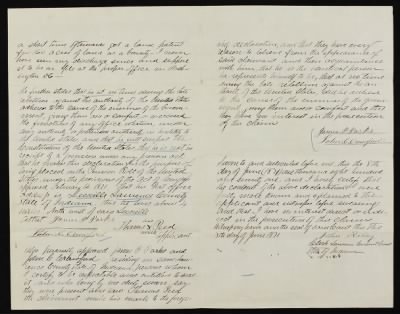 a short time afterward got a land patent
for 160 acres of land as a bounty. I never
have seen my discharge since and suppose
it to be on file at the proper office in Wash-
ington
He further states that at no time during the late
rebellion against the authority of the United States
adhered to the cause of the enemies of the Govern-
ment, giving them aid or comfort, or exercised
the functions of any office whatever under
any authority or pretended authority in hostility to
the United States; and that he will support the
Constitution of the United States; that he is not in
receipt of a pension under any previous act;
that he makes this declaration for the purpose of
being placed on the Pension Roll of the United
States, under the provisions of the Act of Congress
approved February 14 1871
County
State of Indiana
Thomas Reed
Also personally appeared James N. Parks and
John C. Crawford residing in
County State of Indiana, persons whom
I certify to be respectable and entitled to cred-
it and who being by me duly sworn say
they were present and saw Thomas Reed
the claimant make his mark to the forego-
ing declaration, and that they have every
reason to believe from the appearance of
said claimant and their acquaintance
with him that he is the identical person
he represents himself to be, that at no time
during the late rebellion against the au-
thority of the United States, did he adhere
to the cause of the enemies of the govern-
ment, giving them aid or comfort and that
they have no interest in the prosecution
of this claim
James N. Parks
John C. Crawford
Sworn to and subscribed before me, this the
day of June A.D. One thousand eight hundred
and seventy one and I hereby certify that
the contents of the above declaration were
fully made known and explained to the
applicant and witnesses before swearing
and that I have no interest direct or indi-
rect in the prosecution of this claim
day of June 1871